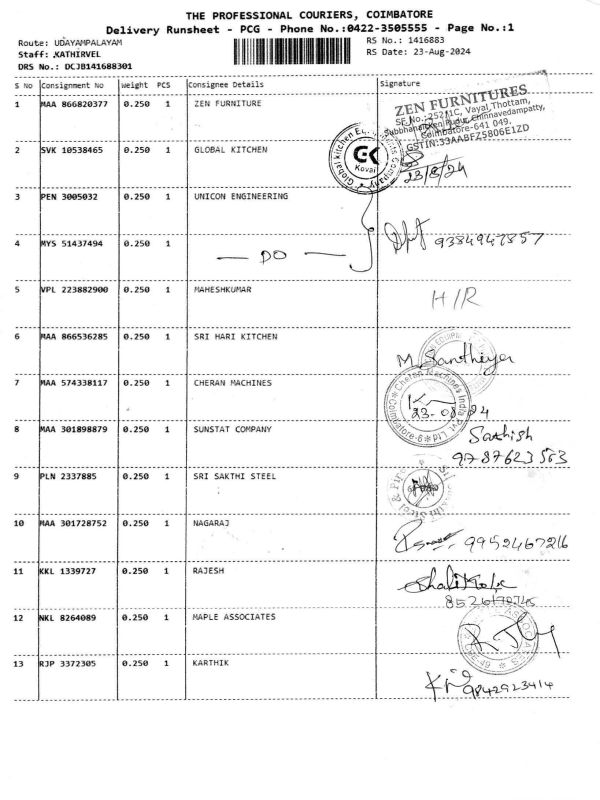 THE PROFESSIONAL COURIERS, COIMBATORE
Delivery Runsheet - PCG - Phone No.:0422-3505555 - Page No.:1
Route: UDAYAMPALAYAM
RS No.: 1416883
Staff: KATHIRVEL
RS Date: 23-Aug-2024
DRS No.: DCJB141688301
S No Consignment No Weight PCS Consignee Details Signature
1 MAA 866820377 0.250 1 ZEN FURNITURE
ZEN FURNITURES
SF No.:252/1C, Vayal Thottam,
Chinnavedampatty,
Coimbatore-641 049.
GSTIN:33AABFZ5806E1ZD
2 SVK 10538465 0.250 1 GLOBAL KITCHEN
Global kitchen Equipments Company
GK
Kovai
23/8/24
3 PEN 3005032 0.250 1 UNICON ENGINEERING
4 MYS 51437494 0.250 1 — DO —
9384947857
5 VPL 223882900 0.250 1 MAHESHKUMAR H/R
6 MAA 866536285 0.250 1 SRI HARI KITCHEN
M. Santhiya
7 MAA 574338117 0.250 1 CHERAN MACHINES
Cheran Machines India Pvt. Ltd Coimbatore-6
23-08-24
8 MAA 301898879 0.250 1 SUNSTAT COMPANY Sathish
9787623563
9 PLN 2337885 0.250 1 SRI SAKTHI STEEL
10 MAA 301728752 0.250 1 NAGARAJ 9952467216
11 KKL 1339727 0.250 1 RAJESH
12 NKL 8264089 0.250 1 MAPLE ASSOCIATES
ASSOCIATES
13 RJP 3372305 0.250 1 KARTHIK 9842923414